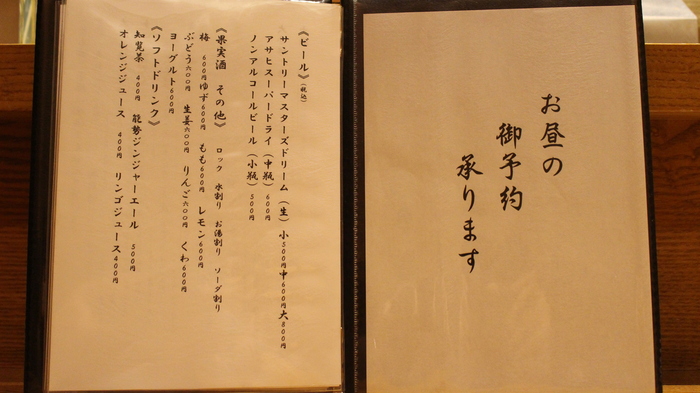 お昼の
御予約
承ります
《ビール》(税込)
サントリーマスターズドリーム(生)小500円中600円大800円
アサヒスーパードライ(中瓶)600円
ノンアルコールビール(小瓶)500円
《果実酒 その他》 ロック 水割り お湯割り ソーダ割り
梅600円 ゆず600円 もも600円 レモン600円
ぶどう六〇〇円 生姜六〇〇円 りんご六〇〇円 くわ600円
ヨーグルト600円
《ソフトドリンク》
知覧茶 400円 能勢ジンジャーエール 500円
オレンジジュース 400円 リンゴジュース400円